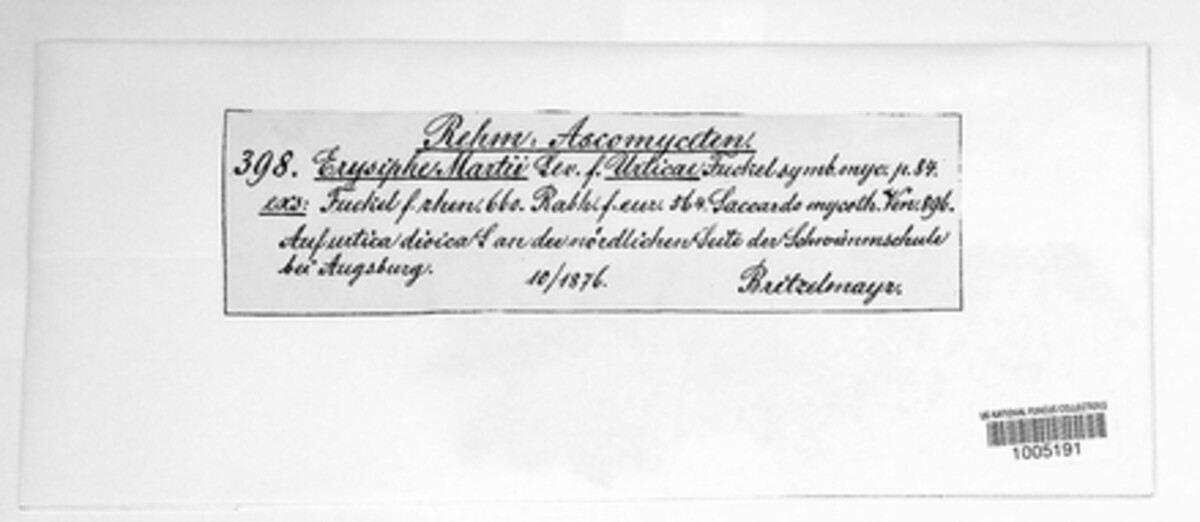 Rehm. Ascomyceten.
398. Erysiphe Martii Lev. f. Urticae Fuckel symb. myc. p. 84.
exs: Fuckel f. rhen. 660. Rabh. f. eur. 564. Saccardo mycoth. Ven. 896.
Auf urtica dioica L an der nördlichen Seite der Schwimmschule
bei Augsburg. 10/1876. Britzelmayr.
US NATIONAL FUNGUS COLLECTIONS
1005191